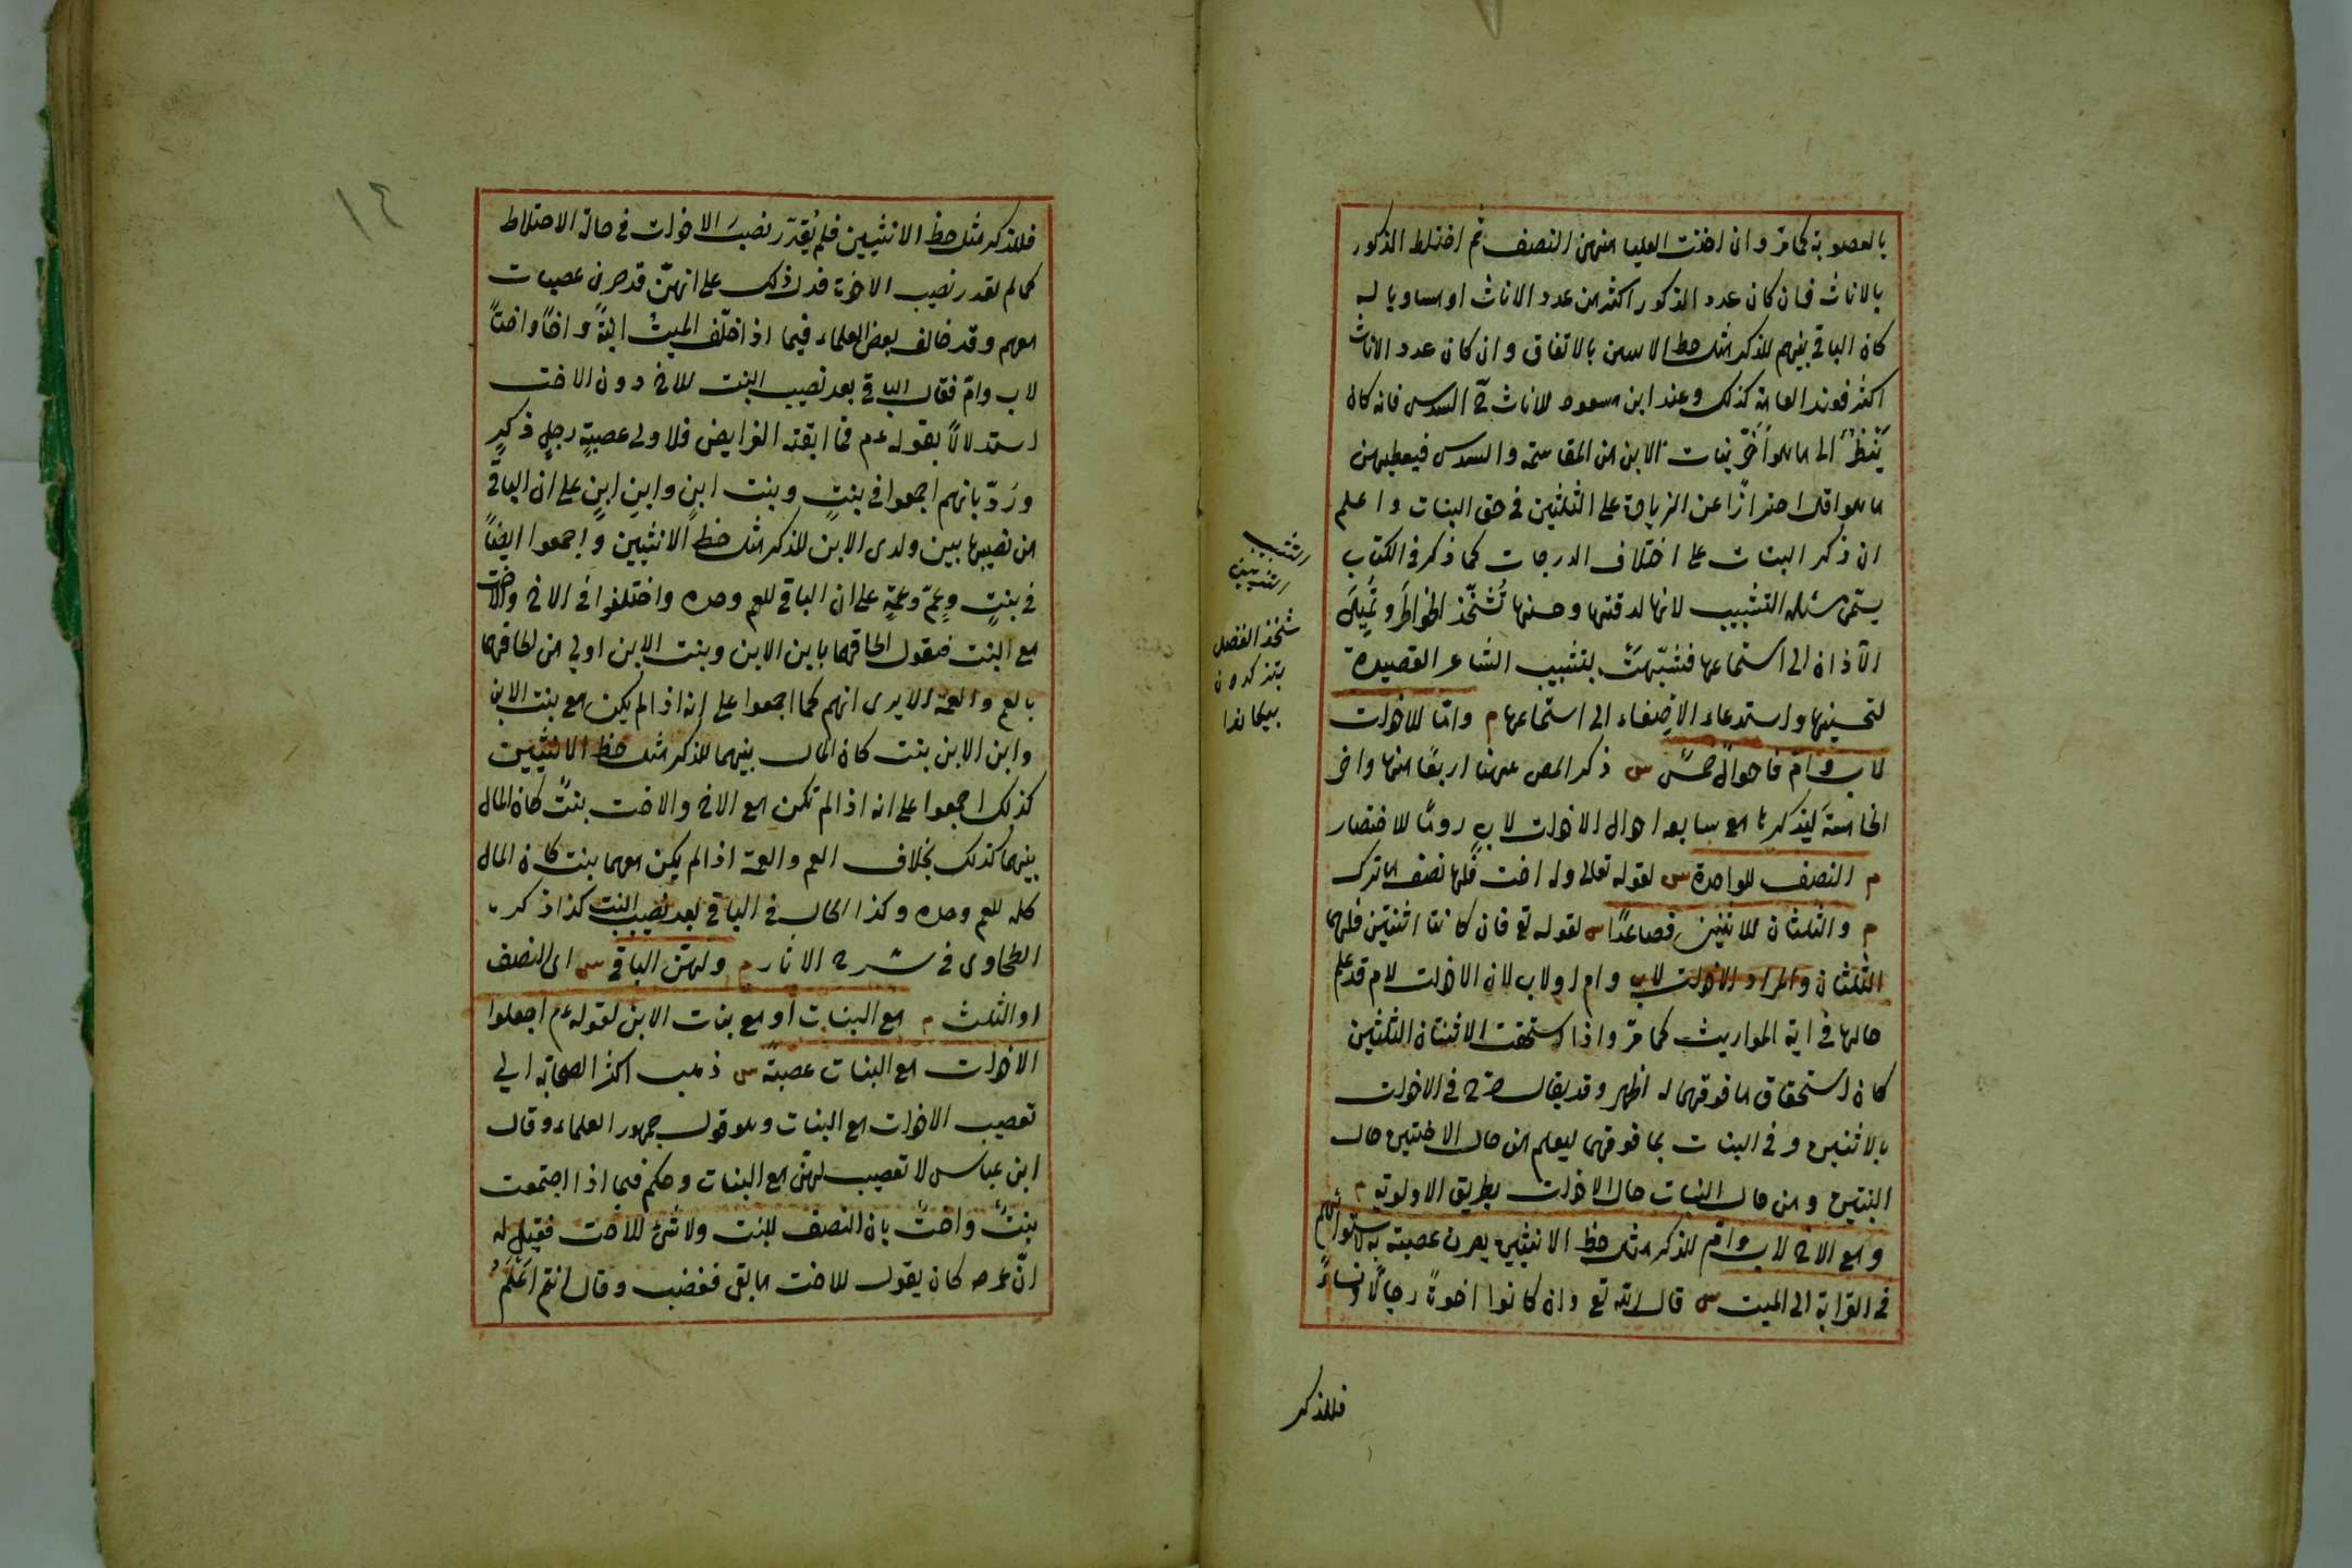 بالعصوبة كما مر وان اخذت العليا منهن النصف ثم اختلط الذكور
بالاناث فان كان عدد الذكور اكثر من عدد الاناث او مساويا له
كان الباقي بينهم للذكر مثل حظ الانثيين بالاتفاق وان كان عدد الاناث
اكثر فعند العامة كذلك وعند ابن مسعود للاناث السدس فانه كان
يَنْظُرُ الى ما هو اَضَرّ بنات الابن من المقاسمة والسدس فيعطيهن
ما هو اقل احترازًا عن الزيادة على الثلثين فى حق البنات واعلم
ان ذكر البنات على اختلاف الدرجات كما ذكر فى الكتاب
يسمى مسئلة التشبيب لانها لدقتها وحسنها تُشَحّذ الخواطرَ وتُميلَ
الآذان الى استماعها فشبّهتْ بتشبيب الشاعر القصيدة
لتحسينها واستدعاء الاِصْغاء الى استماعها م وامّا للاخوات
لاب وامّ فاحوالٌ خمسٌ س ذكر المص ههنا اربعًا منها واخر
الخامسة ليذكرها مع سابعه احوال الاخوات لابٍ رومًا للاختصار
م النصف للواحدة س لقوله تعالى وله اخت فلها نصف ما ترك
م والثلثان للاثنتين فصاعدًا س لقوله تع فان كانتا اثنتين فلهما
الثلثان والمراد الاخوات لاب وام او لاب لان الاخوات لام قد علم
حالها فى آية المواريث كما مرّ واذا استحقت الاثنتان الثلثين
كان استحقاق ما فوقهما له اظهر وقد يقال صرّح فى الاخوات
بالاثنتين وفى البنات بما فوقهما ليعلم من حال الاختين حال
البنتين ومن حال البنات حال الاخوات بطريق الاولوية م
ومع الاخ لاب وامّ للذكر مثل حظ الانثيين يصرن عصبة به لاستوائهم
فى القرابة الى الميت س قال الله تع وان كانوا اخوةً رجالًا ونساءً
فللذكر
التشبيب
شحذ الفضل
فللذكر مثل حظ الانثيين فلم يُقدّر نصيبَ الاخوات فى حالة الاختلاط
كما لم يقدر نصيب الاخوة فدل ذلك على انهنّ قد صرن عصبات
معهم وقد خالف بعض العلماء فيما اذا خلّف الميتُ ابنةً واخًا واختًا
لاب وامّ فقال الباقى بعد نصيب البنت للاخ دون الاخت
استدلالًا بقوله عم فما ابقته الفرايض فلاولى عصبةٍ رجلٍ ذكرٍ
ورَدّ بانهم اجمعوا فى بنتٍ وبنت ابنٍ وابنِ ابنٍ على ان الباقى
من نصيبها بين ولدى الابن للذكر مثل حظ الانثيين واجمعوا ايضًا
فى بنتٍ وعمّ وعمّةٍ على ان الباقى للعم وحده واختلفوا فى الاخ والاخت
مع البنت فنقول الحاقهما بابن الابن وبنت الابن اولى من الحاقهما
بالعم والعمة الا يرى انهم كما اجمعوا على انه اذا لم يكن مع بنت الابن
وابن الابن بنت كان المال بينهما للذكر مثل حظ الانثيين
كذلك اجمعوا على انه اذا لم تكن مع الاخ والاخت بنتٌ كان المال
بينهما كذلك بخلاف العم والعمة اذا لم يكن معهما بنت كان المال
كله للعم وحده وكذا الحال فى الباقى بعد نصيب البنت كذا ذكره
الطحاوى فى شرح الآثار م ولهنّ الباقى س اى النصف
او الثلث م مع البنات او مع بنات الابن لقوله عم اجعلوا
الاخوات مع البنات عصبةً س ذهب اكثر الصحابة الى
تعصيب الاخوات مع البنات وهو قول جمهور العلماء وقال
ابن عباس لا تعصيب لهنّ مع البنات وحكم فيما اذا اجتمعت
بنتٌ واختٌ بان النصف للبنت ولا شئ للاخت فقيل له
انّ عمر رض كان يقول للاخت ما بقى فغضب وقال أنتم اَعْلَمُ
١٢